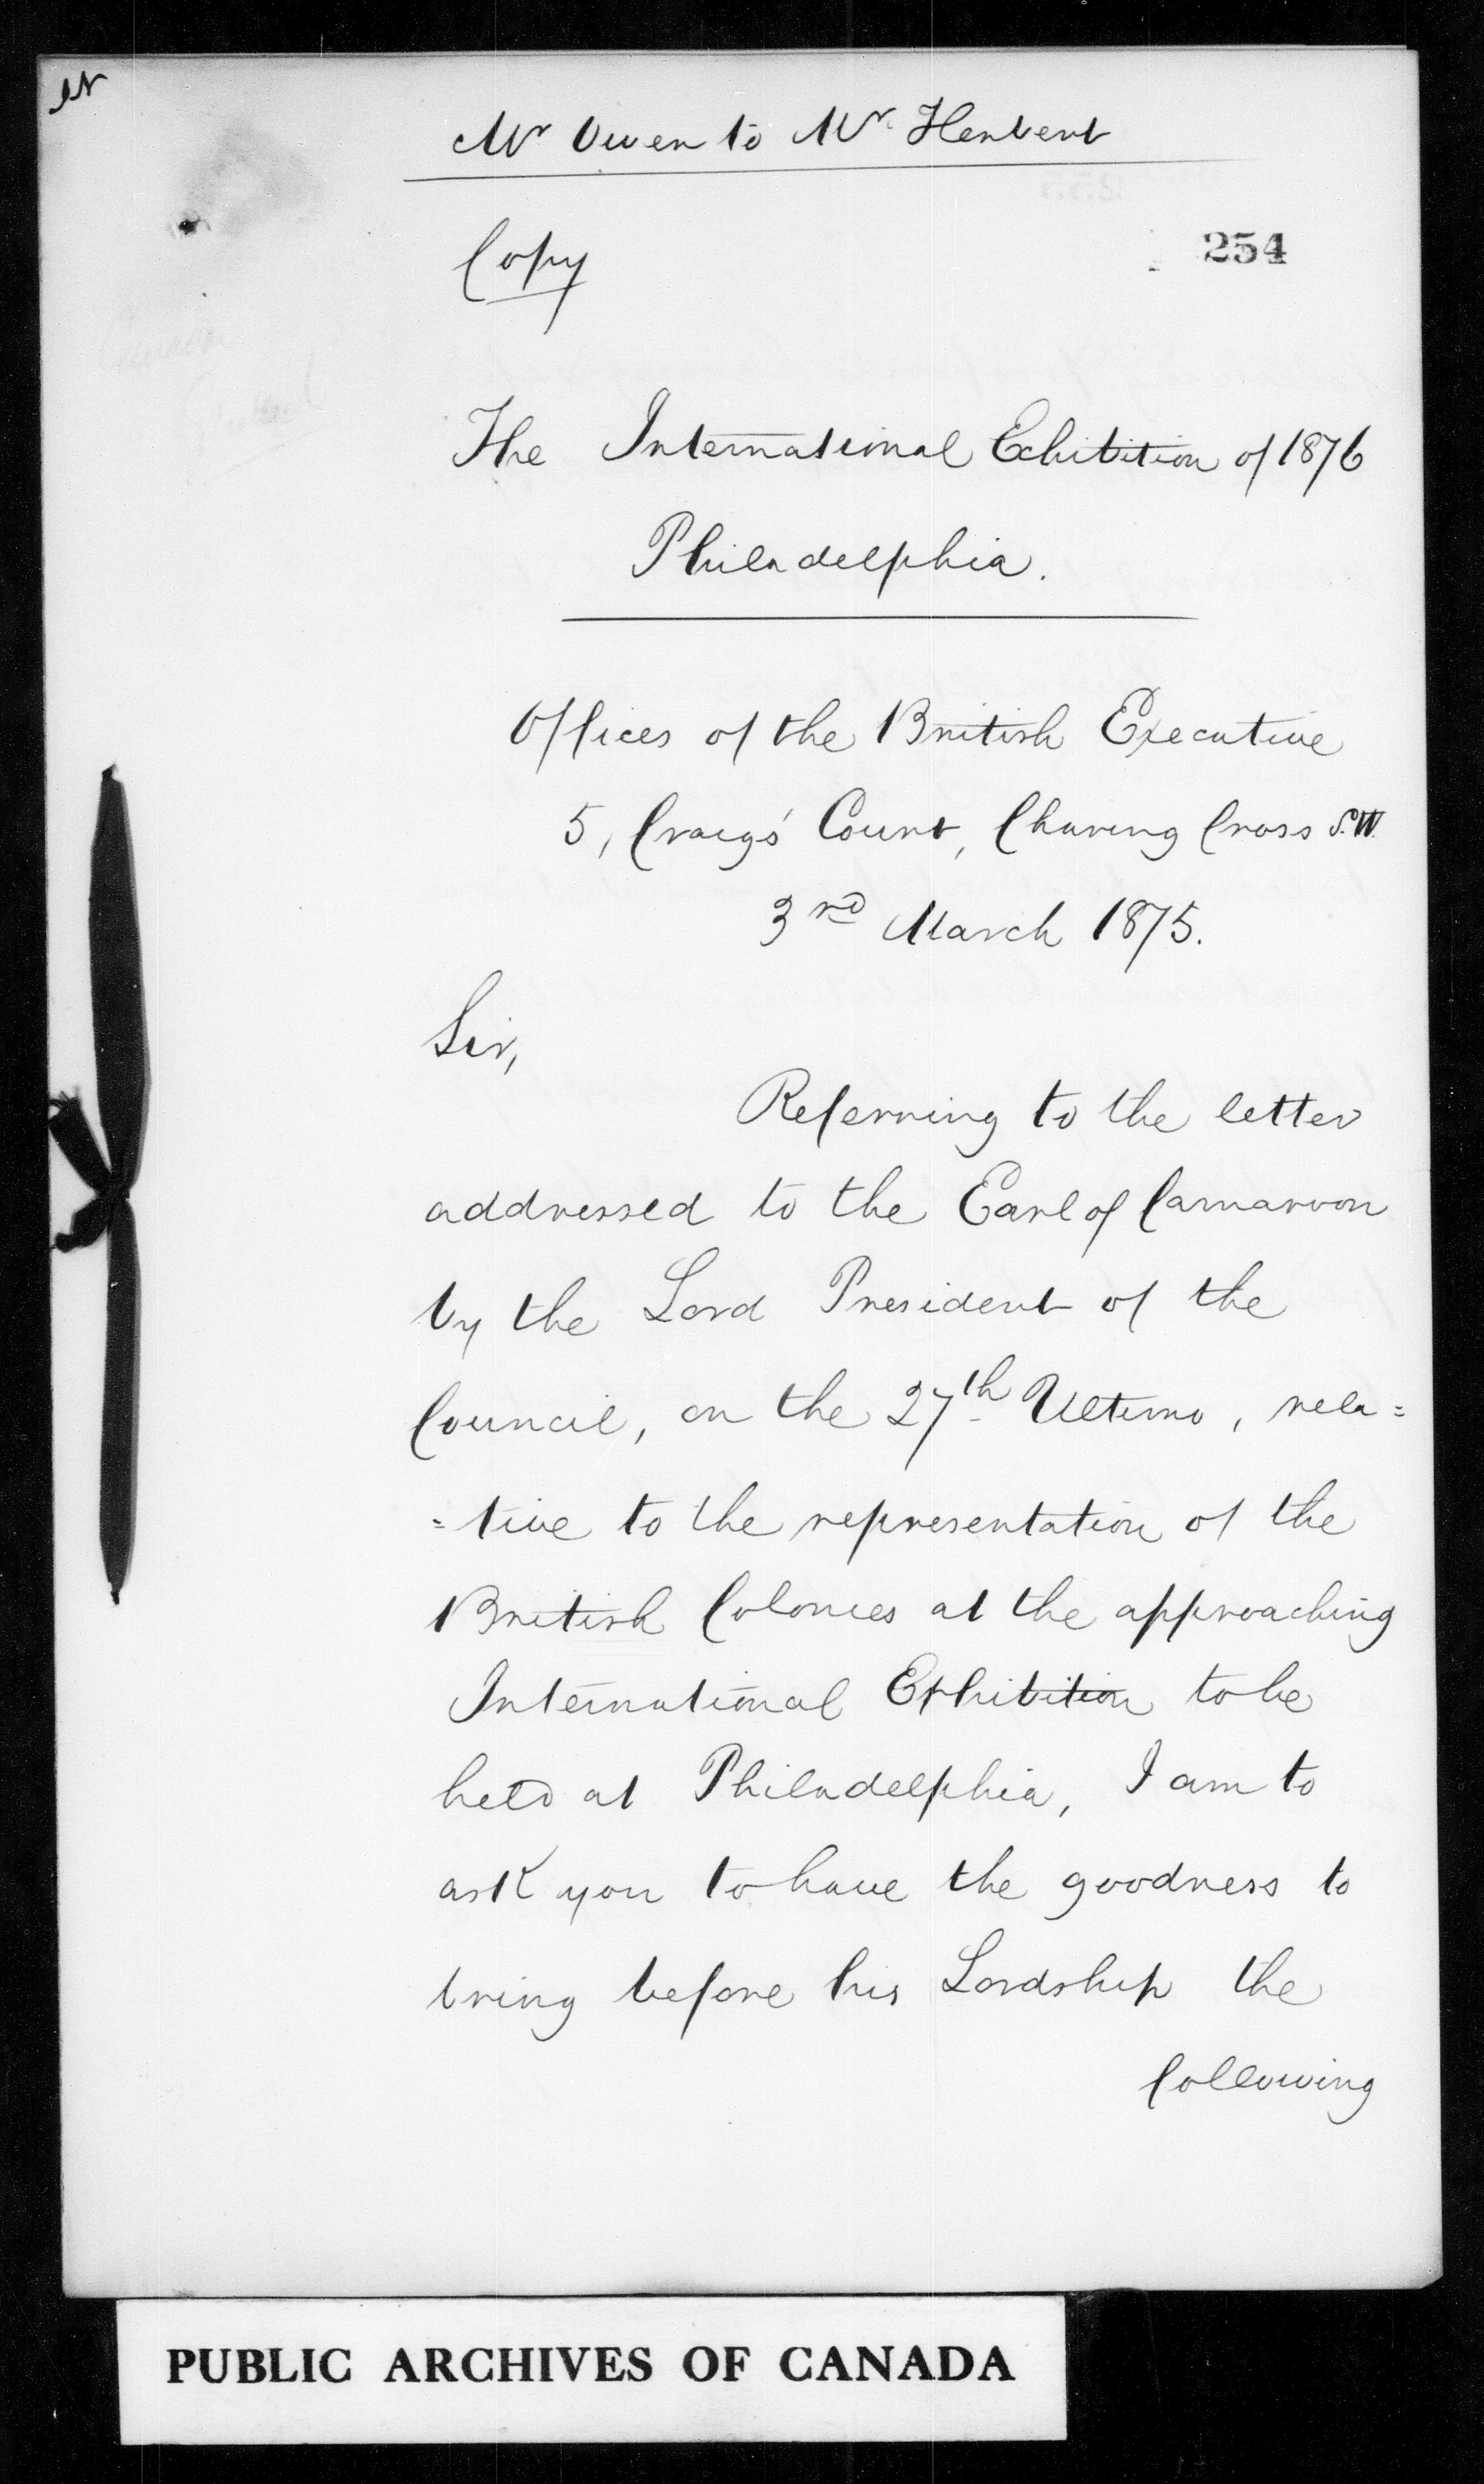 Mr Owen to Mr Herbert
254
Copy
The International Exhibition of 1876
Philadelphia.
Offices of the British Executive
5, Craig's Court, Charing Cross S.W.
3rd March 1875.
Sir,
Referring to the letter
addressed to the Earl of Carnarvon
by the Lord President of the
Council, on the 27th Ultimo, rela=
=tive to the representation of the
British Colonies at the approaching
International Exhibition to be
held at Philadelphia, I am to
ask you to have the goodness to
bring before his Lordship the
following
PUBLIC ARCHIVES OF CANADA